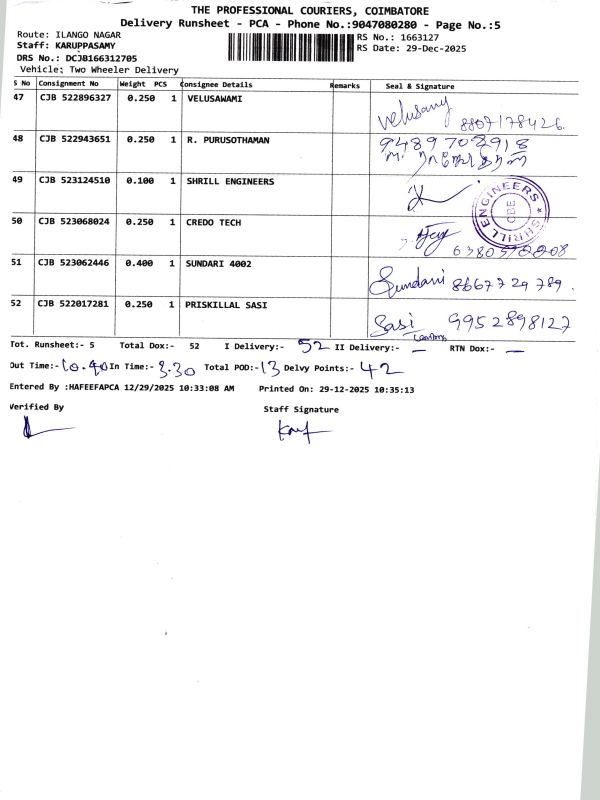 THE PROFESSIONAL COURIERS, COIMBATORE
Delivery Runsheet - PCA - Phone No.:9047080280 - Page No.:5
Route: ILANGO NAGAR
RS No.: 1663127
Staff: KARUPPASAMY
RS Date: 29-Dec-2025
DRS No.: DCJB166312705
Vehicle: Two Wheeler Delivery
S No Consignment No Weight PCS Consignee Details Remarks Seal & Signature
47 CJB 522896327 0.250 1 VELUSAWAMI
velusamy 8807178426
48 CJB 522943651 0.250 1 R. PURUSOTHAMAN
9489702918
49 CJB 523124510 0.100 1 SHRILL ENGINEERS
SHRILL ENGINEERS CBE
50 CJB 523068024 0.250 1 CREDO TECH
51 CJB 523062446 0.400 1 SUNDARI 4002
Sundari 8667729789.
52 CJB 522017281 0.250 1 PRISKILLAL SASI
Sasi 9952898127
Tot. Runsheet:- 5 Total Dox:- 52 I Delivery:- 52 II Delivery:- — RTN Dox:- —
Out Time:- 10.40 In Time:- 3.30 Total POD:- 13 Delvy Points:- 42
Entered By :HAFEEFAPCA 12/29/2025 10:33:08 AM Printed On: 29-12-2025 10:35:13
Verified By Staff Signature